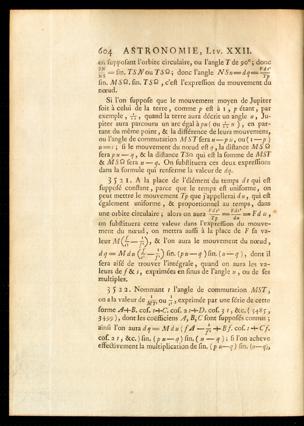 604 ASTRONOMIE, LIV. XXII.
en supposant l'orbite circulaire, ou l'angle T de 90°; donc
SN/NS = sin. TSN ou TS☊; donc l'angle NSn = dq =
sin. MS☊. sin. TS☊, c'est l'expression du mouvement du
nœud.
Si l'on suppose que le mouvement moyen de Jupiter
soit à celui de la terre, comme p est à 1, p étant, par
exemple, quand la terre aura décrit un angle u, Ju-
piter aura parcouru un arc égal à pu; en par-
tant du même point, & la différence de leurs mouvemens,
ou l'angle de commutation MST sera u — pu, ou (1 — p)
u = t; si le mouvement du nœud est q, la distance MS☊
sera pu — q, & la distance TS☊ qui est la somme de MST
& MS☊ sera u — q. On substituera ces deux expressions
dans la formule qui renferme la valeur de dq.
3521. A la place de l'élément du temps dt qui est
supposé constant, parce que le temps est uniforme, on
peut mettre le mouvement Tp que j'appellerai du, qui est
également uniforme, & proportionnel au temps, dans
une orbite circulaire; alors on aura = F du,
on substituera cette valeur dans l'expression du mouve-
ment du nœud, on mettra aussi à la place de F sa va-
leur M, & l'on aura le mouvement du nœud,
dq = M du sin. (pu — q) sin. (u — q), dont il
sera aisé de trouver l'intégrale, quand on aura les va-
leurs de f & s, exprimées en sinus de l'angle u, ou de ses
multiples.
3522. Nommant t l'angle de commutation MST,
on a la valeur de ou, exprimée par une série de cette
forme A + B. cos. t + C. cos. 2t + D. cos. 3t, &c. (3485,
3499), dont les coëfficiens A, B, C sont supposés connus;
ainsi l'on aura dq = M du (fA — + Bf. cos. t + Cf.
cos. 2t, &c.) sin. (pu — q) sin. (u — q); si l'on acheve
effectivement la multiplication de sin. (pu — q) sin. (u — q),